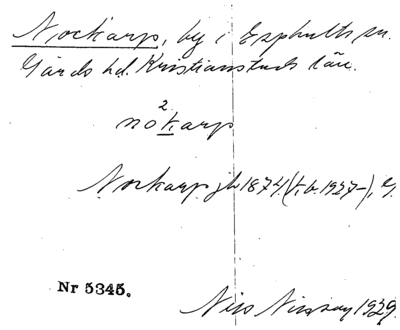 Nockarp, by i Esphults sn.
Gärds hd. Kristianstads län.
2
nokarp
Norkarp jb 1874 (t.b. 1927–), G.
Nr 5345.
Nils 1929